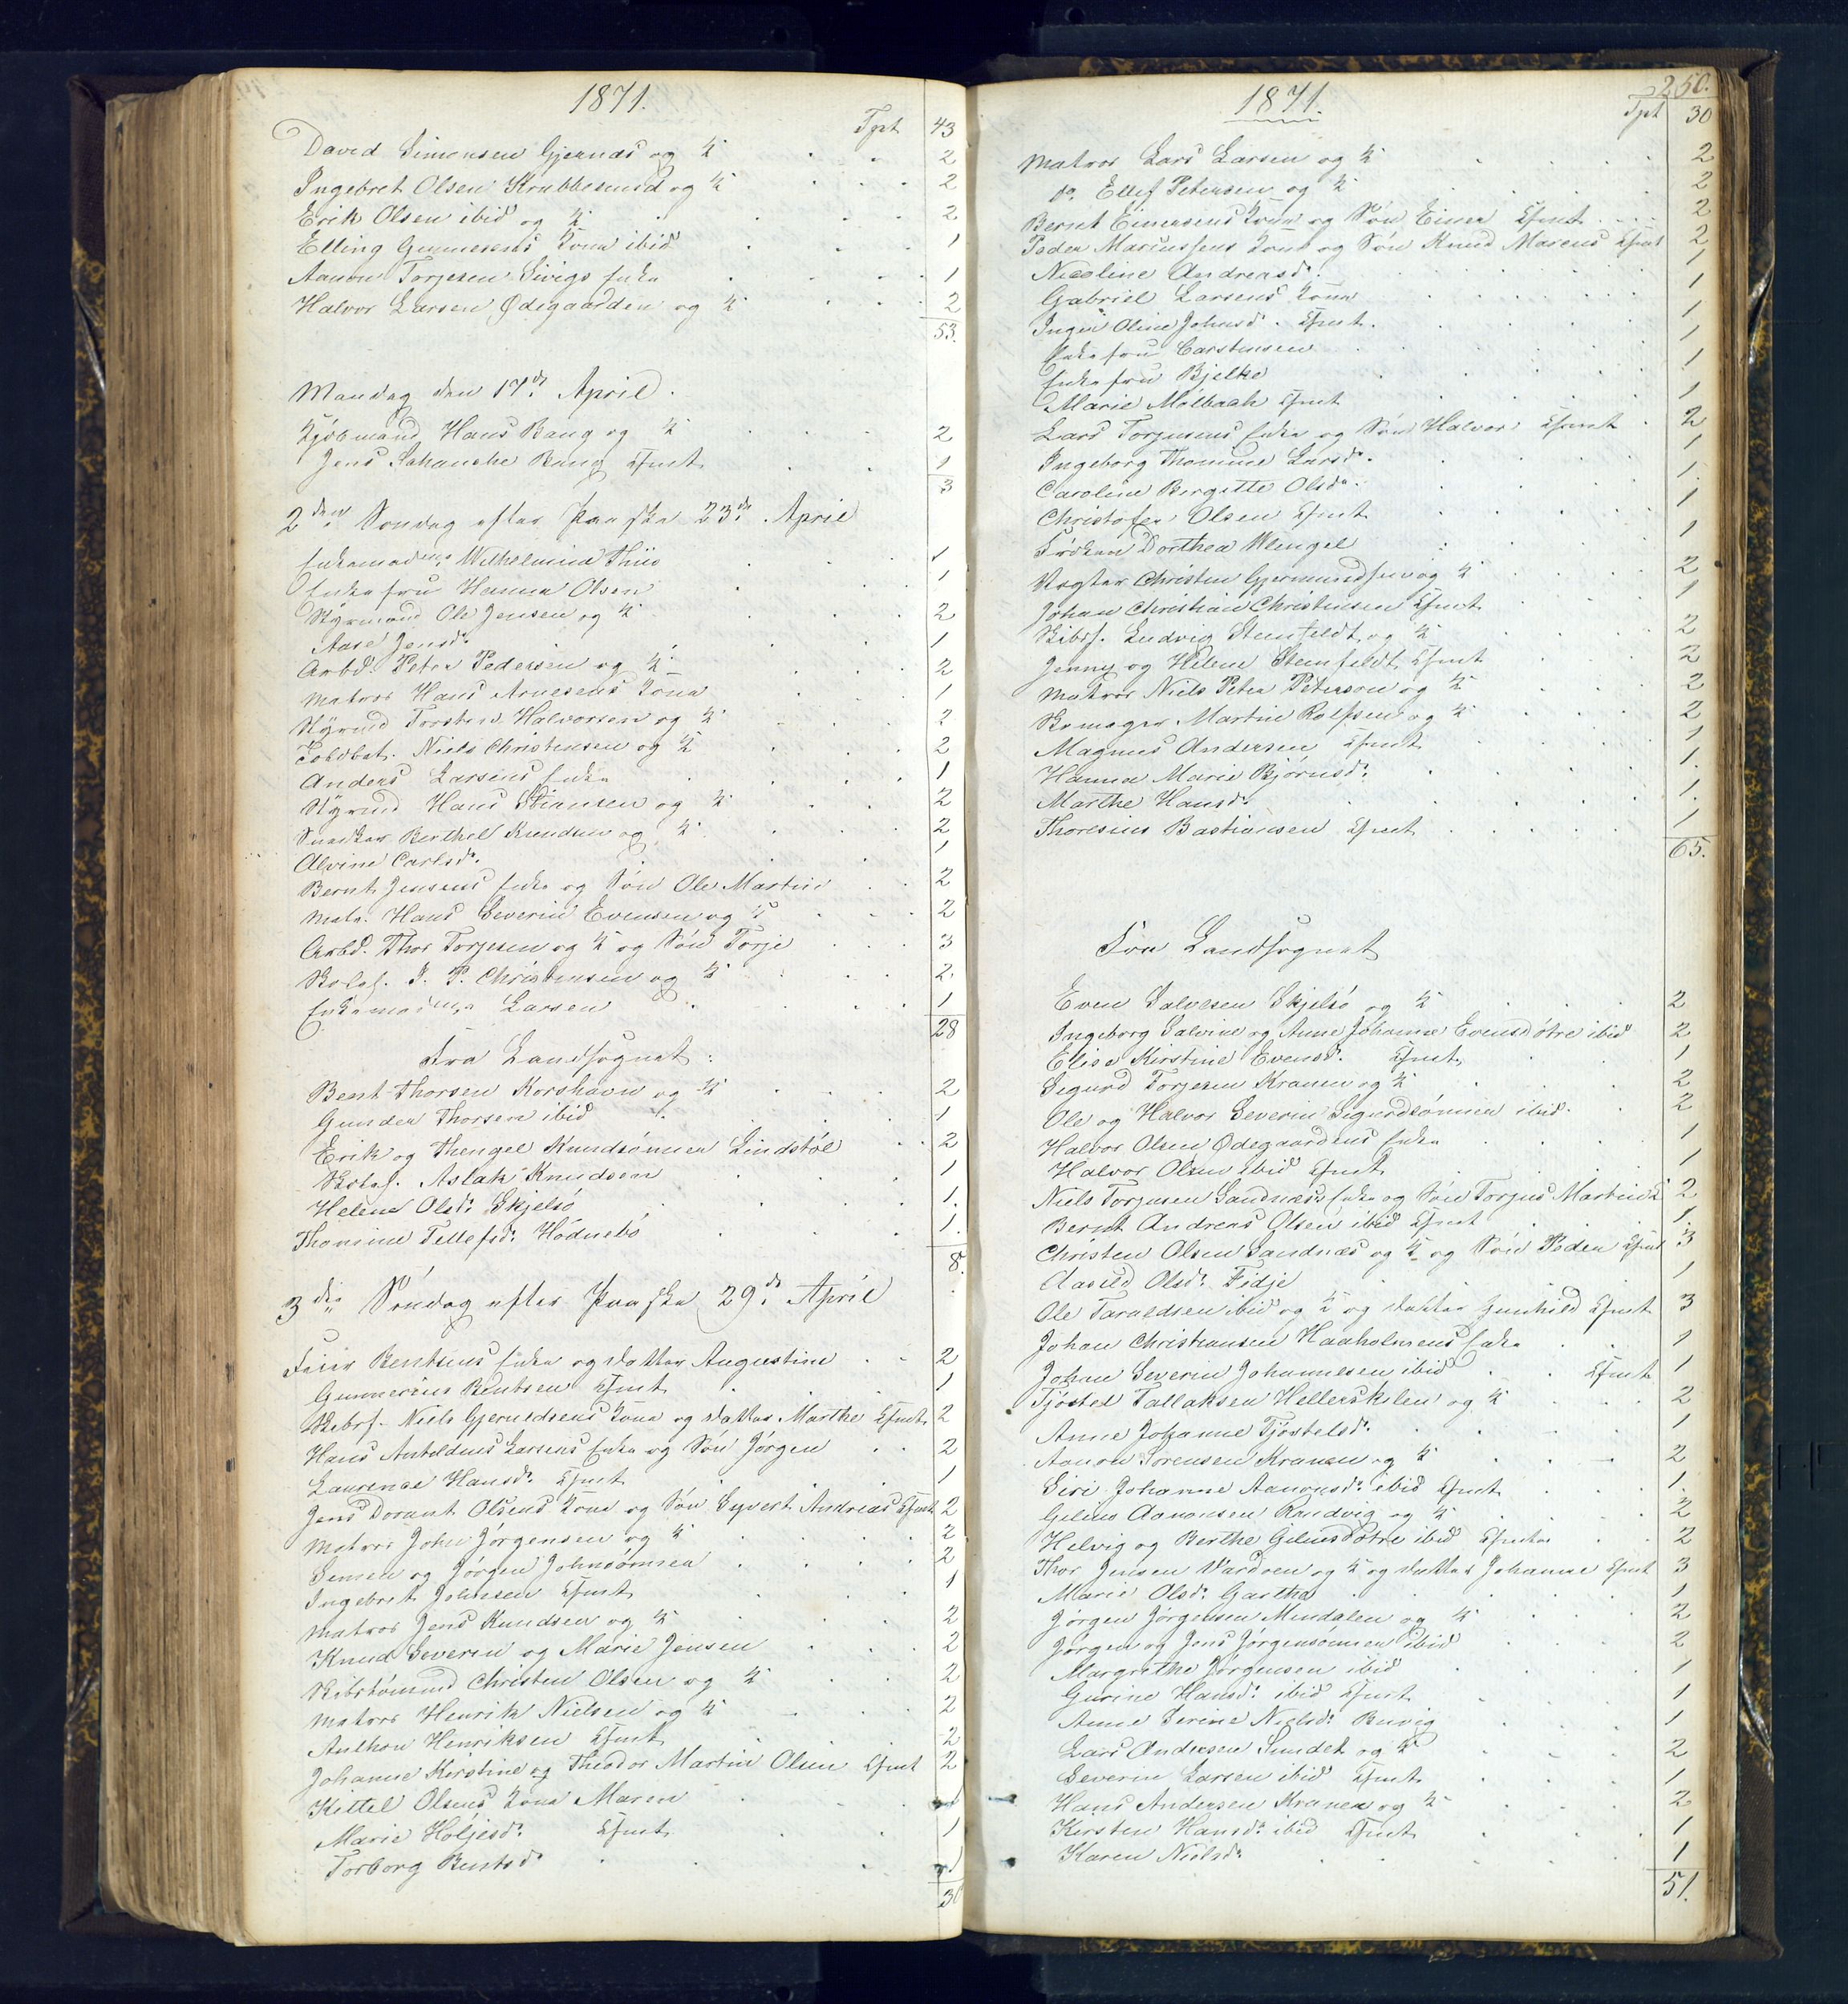 1871.
Tpt 43
David Simonsen Gjernæs og K. 2
Ingebret Olsen Krabbesund og K. 2
Erik Olsen ibid og K. 2
Elling Gunnersens Kone ibid 1
Aanon Torjesen Sivigs Enke 1
Halvor Larsen Ødegaarden og K. 2
53.
Mandag den 17de April.
Kjøbmand Hans Bang og K. 2
Jens Schanche Bang Cfmt. 1
3
2den Søndag efter Paaske 23de April
Enkemadme Wilhelmine Thiis 1
Enkefru Hanna Olsen 1
Styrmand Ole Jensen og K. 2
Aase Jensd. 1
Arbd. Peter Pedersen og K. 2
Matros Hans Arnesens Kone 1
Styrmd Torsten Halvorsen og K. 2
Toldbet. Niels Christensen og K. 2
Anders Larsens Enke 1
Styrmd Hans Stiansen og K. 2
Snedker Berthel Knudsen og K. 2
Alvine Carlsd. 1
Bernt Jensens Enke og Søn Ole Martin 2
Matr. Hans Severin Evensen og K. 2
Arbd. Thor Torjesen og K. og Søn Torje 3
Skibsf. P. Christensen og K. 2.
Enkemadme Larsen 1
28
Fra Landsognet:
Bent Thorsen Korshavn og K. 2
Gunder Thorsen ibid 1
Erik og Thengel Knudsønner Lindstøl 2
Skibsf. Aslak Knudsen 1
Helene Olsd. Skjelsø 1.
Thomine Tellefsd. Hødnebø 1.
8.
3die Søndag efter Paaske 29de April
Feier Bentsens Enke og Datter Augustine 2
Gunnerius Bentsen Cfmt. 1
Skibsf. Niels Gjerudsens Kone og Datter Marthe Cfmt. 2
Hans Larsens Enke og Søn Jørgen 2
Laurence Hansd. Cfmt. 1
Jens Olsens Kone og Søn Syvert Andreas Cfmt 2
Matros John Jørgensen og K. 2
Simen og Jørgen Johnsønner 2
Ingebret Johnsen Cfmt. 1
Matros Jens Knudsen og K. 2
Knud Severin og Marie Jensen 2
Skibstømmd Christen Olsen og K. 2
Matros Henrik Nielsen og K. 2
Anthon Henriksen Cfmt. 2
Johanne Kirstine og Theodor Martin Olsen Cfmt 2
Kittel Olsens Kone Maren 1
Marie Holjesd. Cfmt. 1
Torborg Bentsd. 1
30
250.
1871.
Tpt 30
Matros Lars Larsen og K. 2
do. Ellef Petersen og K. 2
Bernt Einersens Kone og Søn Einer Cfmt. 2
Peder Marcussens Kone og Søn Knud Marcus Cfmt 2
Nicoline Andreasd. 1
Gabriel Larsens Kone 1
Inger Oline Johnsd. Cfmt. 1
Enkefru Carstensen 1
Enkefru Bjelke 1
Marie Mølbach Cfmt 1
Lars Torjusens Enke og Søn Halvor Cfmt 2
Ingeborg Thomine Larsd. 1
Caroline Bergitte Olsd. 1.
Christofer Olsen Cfmt 1
Frøken Dorthea Wengel 1
Vægter Christen Gjermundsen og K. 2
Johan Christian Christensen Cfmt 1
Skibsf. Ludvig Steenfeldt og K. 2
Jenny og Helene Steenfeldt Cfmt 2
Matros Niels Peter Peterson og K. 2
Skomager Martin Rolfsen og K. 2
Magnus Andersen Cfmt 1
Hanna Marie Bjørnsd. 1.
Marthe Hansd. 1.
Thoresius Bastiansen Cfmt 1
65.
Fra Landsognet
Even Salvesen Skjelsø og K. 2
Ingeborg Salvine og Anne Johanne Evensdøtre ibid 2
Elise Kirstine Evensd. Cfmt. 1
Sigurd Torjesen Kranen og K. 2
Ole og Halvor Severin Sigurdsønner ibid. 2
Halvor Olsen Ødegaardens Enke 1
Halvor Olsen ibid Cfmt. 1
Niels Torjusen Sandnæs's Enke og Søn Torjus Martin 2
Bernt Andreas Olsen ibid Cfmt 1
Christen Olsen Sandnæs og K. og Søn Peder Cfmt 3
Aasild Olsd. Fidje 1
Ole Taraldsen ibid og K. og Datter Gunhild Cfmt 3
Johan Christiansen Haaholmens Enke 1
Johan Severin Johannesen ibid Cfmt 1
Tjøstel Tallaksen Hellerskilen og K. 2
Anne Johanne Tjøstelsd. 1
Aanon Sørensen Kranen og K. 2
Siri Johanne Aanonsd. ibid Cfmt. 1.
Gelius Aanonsen Randvig og K. 2
Helvig og Berthe Geliusdøtre ibid Cfmter 2
Thor Jensen Vardøen og K. og Datter Johanne Cfmt 3
Marie Olsd. Gartha 1
Jørgen Jørgensen Mindalen og K. 2
Jørgen og Jens Jørgensønner ibid 2
Margrethe Jørgensen ibid 1
Gurine Hansd. ibid Cfmt. 1
Anne Serine Nielsd. Buvig 1
Lars Andersen Sundet og K. 2
Severin Larsen ibid Cfmt. 1
Hans Andersen Kranen og K. 2
Kirsten Hansd. ibid Cfmt. 1
Karen Nielsd. 1
51.